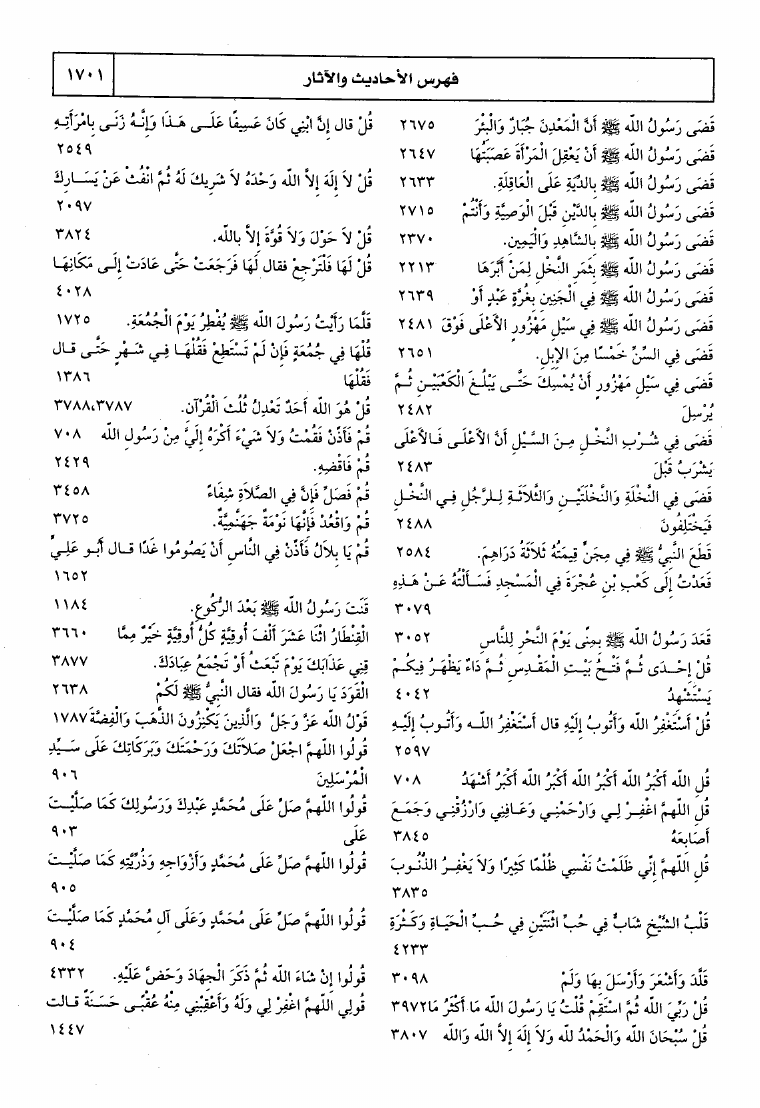 فهرس الأحاديث والآثار
١٧٠١
قَضَى رَسُولُ الله ﷺ أَنَّ الْمَعْدِنَ جُبَارٌ وَالْبِئْرَ ٢٦٧٥
قَضَى رَسُولُ الله ﷺ أَنْ يَعْقِلَ الْمَرْأَةَ عَصَبَتُهَا ٢٦٤٧
قَضَى رَسُولُ الله ﷺ بِالدِّيَةِ عَلَى الْعَاقِلَةِ. ٢٦٣٣
قَضَى رَسُولُ الله ﷺ بِالدَّيْنِ قَبْلَ الْوَصِيَّةِ وَأَنْتُمْ ٢٧١٥
قَضَى رَسُولُ الله ﷺ بِالشَّاهِدِ وَالْيَمِينِ. ٢٣٧٠
قَضَى رَسُولُ الله ﷺ بِثَمَرِ النَّخْلِ لِمَنْ أَبَّرَهَا ٢٢١٣
قَضَى رَسُولُ الله ﷺ فِي الْجَنِينِ بِغُرَّةٍ عَبْدٍ أَوْ ٢٦٣٩
قَضَى رَسُولُ الله ﷺ فِي سَيْلِ مَهْزُورٍ الأَعْلَى فَوْقَ ٢٤٨١
قَضَى فِي السِّنِّ خَمْسًا مِنَ الإِبِلِ. ٢٦٥١
قَضَى فِي سَيْلِ مَهْزُورٍ أَنْ يُمْسِكَ حَتَّى يَبْلُغَ الْكَعْبَيْنِ ثُمَّ
يُرْسِلَ ٢٤٨٢
قَضَى فِي شُرْبِ النَّخْلِ مِنَ السَّيْلِ أَنَّ الأَعْلَى فَالأَعْلَى
يَشْرَبُ قَبْلَ ٢٤٨٣
قَضَى فِي النَّخْلَةِ وَالنَّخْلَتَيْنِ وَالثَّلاَثَةِ لِلرَّجُلِ فِي النَّخْلِ
فَيَخْتَلِفُونَ ٢٤٨٨
قَطَعَ النَّبِيُّ ﷺ فِي مِجَنٍّ قِيمَتُهُ ثَلاَثَةُ دَرَاهِمَ. ٢٥٨٤
قَعَدْتُ إِلَى كَعْبِ بْنِ عُجْرَةَ فِي الْمَسْجِدِ فَسَأَلْتُهُ عَنْ هَذِهِ
٣٠٧٩
قَعَدَ رَسُولُ الله ﷺ بِمِنًى يَوْمَ النَّحْرِ لِلنَّاسِ ٣٠٥٢
قُلْ إِحْدَى ثُمَّ فَتْحُ بَيْتِ الْمَقْدِسِ ثُمَّ دَاءٌ يَظْهَرُ فِيكُمْ
يَسْتَشْهِدُ ٤٠٤٢
قُلْ أَسْتَغْفِرُ الله وَأَتُوبُ إِلَيْهِ قال أَسْتَغْفِرُ الله وَأَتُوبُ إِلَيْهِ
٢٥٩٧
قُلِ الله أَكْبَرُ الله أَكْبَرُ الله أَكْبَرُ الله أَكْبَرُ أَشْهَدُ ٧٠٨
قُلِ اللهمَّ اغْفِرْ لِي وَارْحَمْنِي وَعَافِنِي وَارْزُقْنِي وَجَمَعَ
أَصَابِعَهُ ٣٨٤٥
قُلِ اللهمَّ إِنِّي ظَلَمْتُ نَفْسِي ظُلْمًا كَثِيرًا وَلاَ يَغْفِرُ الذُّنُوبَ
٣٨٣٥
قَلْبُ الشَّيْخِ شَابٌّ فِي حُبِّ اثْنَتَيْنِ فِي حُبِّ الْحَيَاةِ وَكَثْرَةِ
٤٢٣٣
قَلَّدَ وَأَشْعَرَ وَأَرْسَلَ بِهَا وَلَمْ ٣٠٩٨
قُلْ رَبِّيَ الله ثُمَّ اسْتَقِمْ قُلْتُ يَا رَسُولَ الله مَا أَكْثَرُ مَا ٣٩٧٢
قُلْ سُبْحَانَ الله وَالْحَمْدُ لله وَلاَ إِلَهَ إِلاَّ الله وَالله ٣٨٠٧
قُلْ قال إِنَّ ابْنِي كَانَ عَسِيفًا عَلَى هَذَا وَإِنَّهُ زَنَى بِامْرَأَتِهِ
٢٥٤٩
قُلْ لاَ إِلَهَ إِلاَّ الله وَحْدَهُ لاَ شَرِيكَ لَهُ ثُمَّ انْفُثْ عَنْ يَسَارِكَ
٢٠٩٧
قُلْ لاَ حَوْلَ وَلاَ قُوَّةَ إِلاَّ بالله. ٣٨٢٤
قُلْ لَهَا فَلْتَرْجِعْ فقال لَهَا فَرَجَعَتْ حَتَّى عَادَتْ إِلَى مَكَانِهَا
٤٠٢٨
قَلَّمَا رَأَيْتُ رَسُولَ الله ﷺ يُفْطِرُ يَوْمَ الْجُمُعَةِ. ١٧٢٥
قُلْهَا فِي جُمُعَةٍ فَإِنْ لَمْ تَسْتَطِعْ فَقُلْهَا فِي شَهْرٍ حَتَّى قال
فَقُلْهَا ١٣٨٦
قُلْ هُوَ الله أَحَدٌ تَعْدِلُ ثُلُثَ الْقُرْآنِ. ٣٧٨٧،٣٧٨٨
قُمْ فَأَذِّنْ فَقُمْتُ وَلاَ شَيْءَ أَكْرَهُ إِلَيَّ مِنْ رَسُولِ الله ٧٠٨
قُمْ فَاقْضِهِ. ٢٤٢٩
قُمْ فَصَلِّ فَإِنَّ فِي الصَّلاَةِ شِفَاءً ٣٤٥٨
قُمْ وَاقْعُدْ فَإِنَّهَا نَوْمَةٌ جَهَنَّمِيَّةٌ. ٣٧٢٥
قُمْ يَا بِلاَلُ فَأَذِّنْ فِي النَّاسِ أَنْ يَصُومُوا غَدًا قال أَبُو عَلِيٍّ
١٦٥٢
قَنَتَ رَسُولُ الله ﷺ بَعْدَ الرُّكُوعِ. ١١٨٤
الْقِنْطَارُ اثْنَا عَشَرَ أَلْفَ أُوقِيَّةٍ كُلُّ أُوقِيَّةٍ خَيْرٌ مِمَّا ٣٦٦٠
قِنِي عَذَابَكَ يَوْمَ تَبْعَثُ أَوْ تَجْمَعُ عِبَادَكَ. ٣٨٧٧
الْقَوَدَ يَا رَسُولَ الله فقال النَّبِيُّ ﷺ لَكُمْ ٢٦٣٨
قَوْلُ الله عَزَّ وَجَلَّ وَالَّذِينَ يَكْنِزُونَ الذَّهَبَ وَالْفِضَّةَ ١٧٨٧
قُولُوا اللهمَّ اجْعَلْ صَلاَتَكَ وَرَحْمَتَكَ وَبَرَكَاتِكَ عَلَى سَيِّدِ
الْمُرْسَلِينَ ٩٠٦
قُولُوا اللهمَّ صَلِّ عَلَى مُحَمَّدٍ عَبْدِكَ وَرَسُولِكَ كَمَا صَلَّيْتَ
عَلَى ٩٠٣
قُولُوا اللهمَّ صَلِّ عَلَى مُحَمَّدٍ وَأَزْوَاجِهِ وَذُرِّيَّتِهِ كَمَا صَلَّيْتَ
٩٠٥
قُولُوا اللهمَّ صَلِّ عَلَى مُحَمَّدٍ وَعَلَى آلِ مُحَمَّدٍ كَمَا صَلَّيْتَ
٩٠٤
قُولُوا إِنْ شَاءَ الله ثُمَّ ذَكَرَ الْجِهَادَ وَحَضَّ عَلَيْهِ. ٤٣٣٢
قُولِي اللهمَّ اغْفِرْ لِي وَلَهُ وَأَعْقِبْنِي مِنْهُ عُقْبًى حَسَنَةً قالت
١٤٤٧